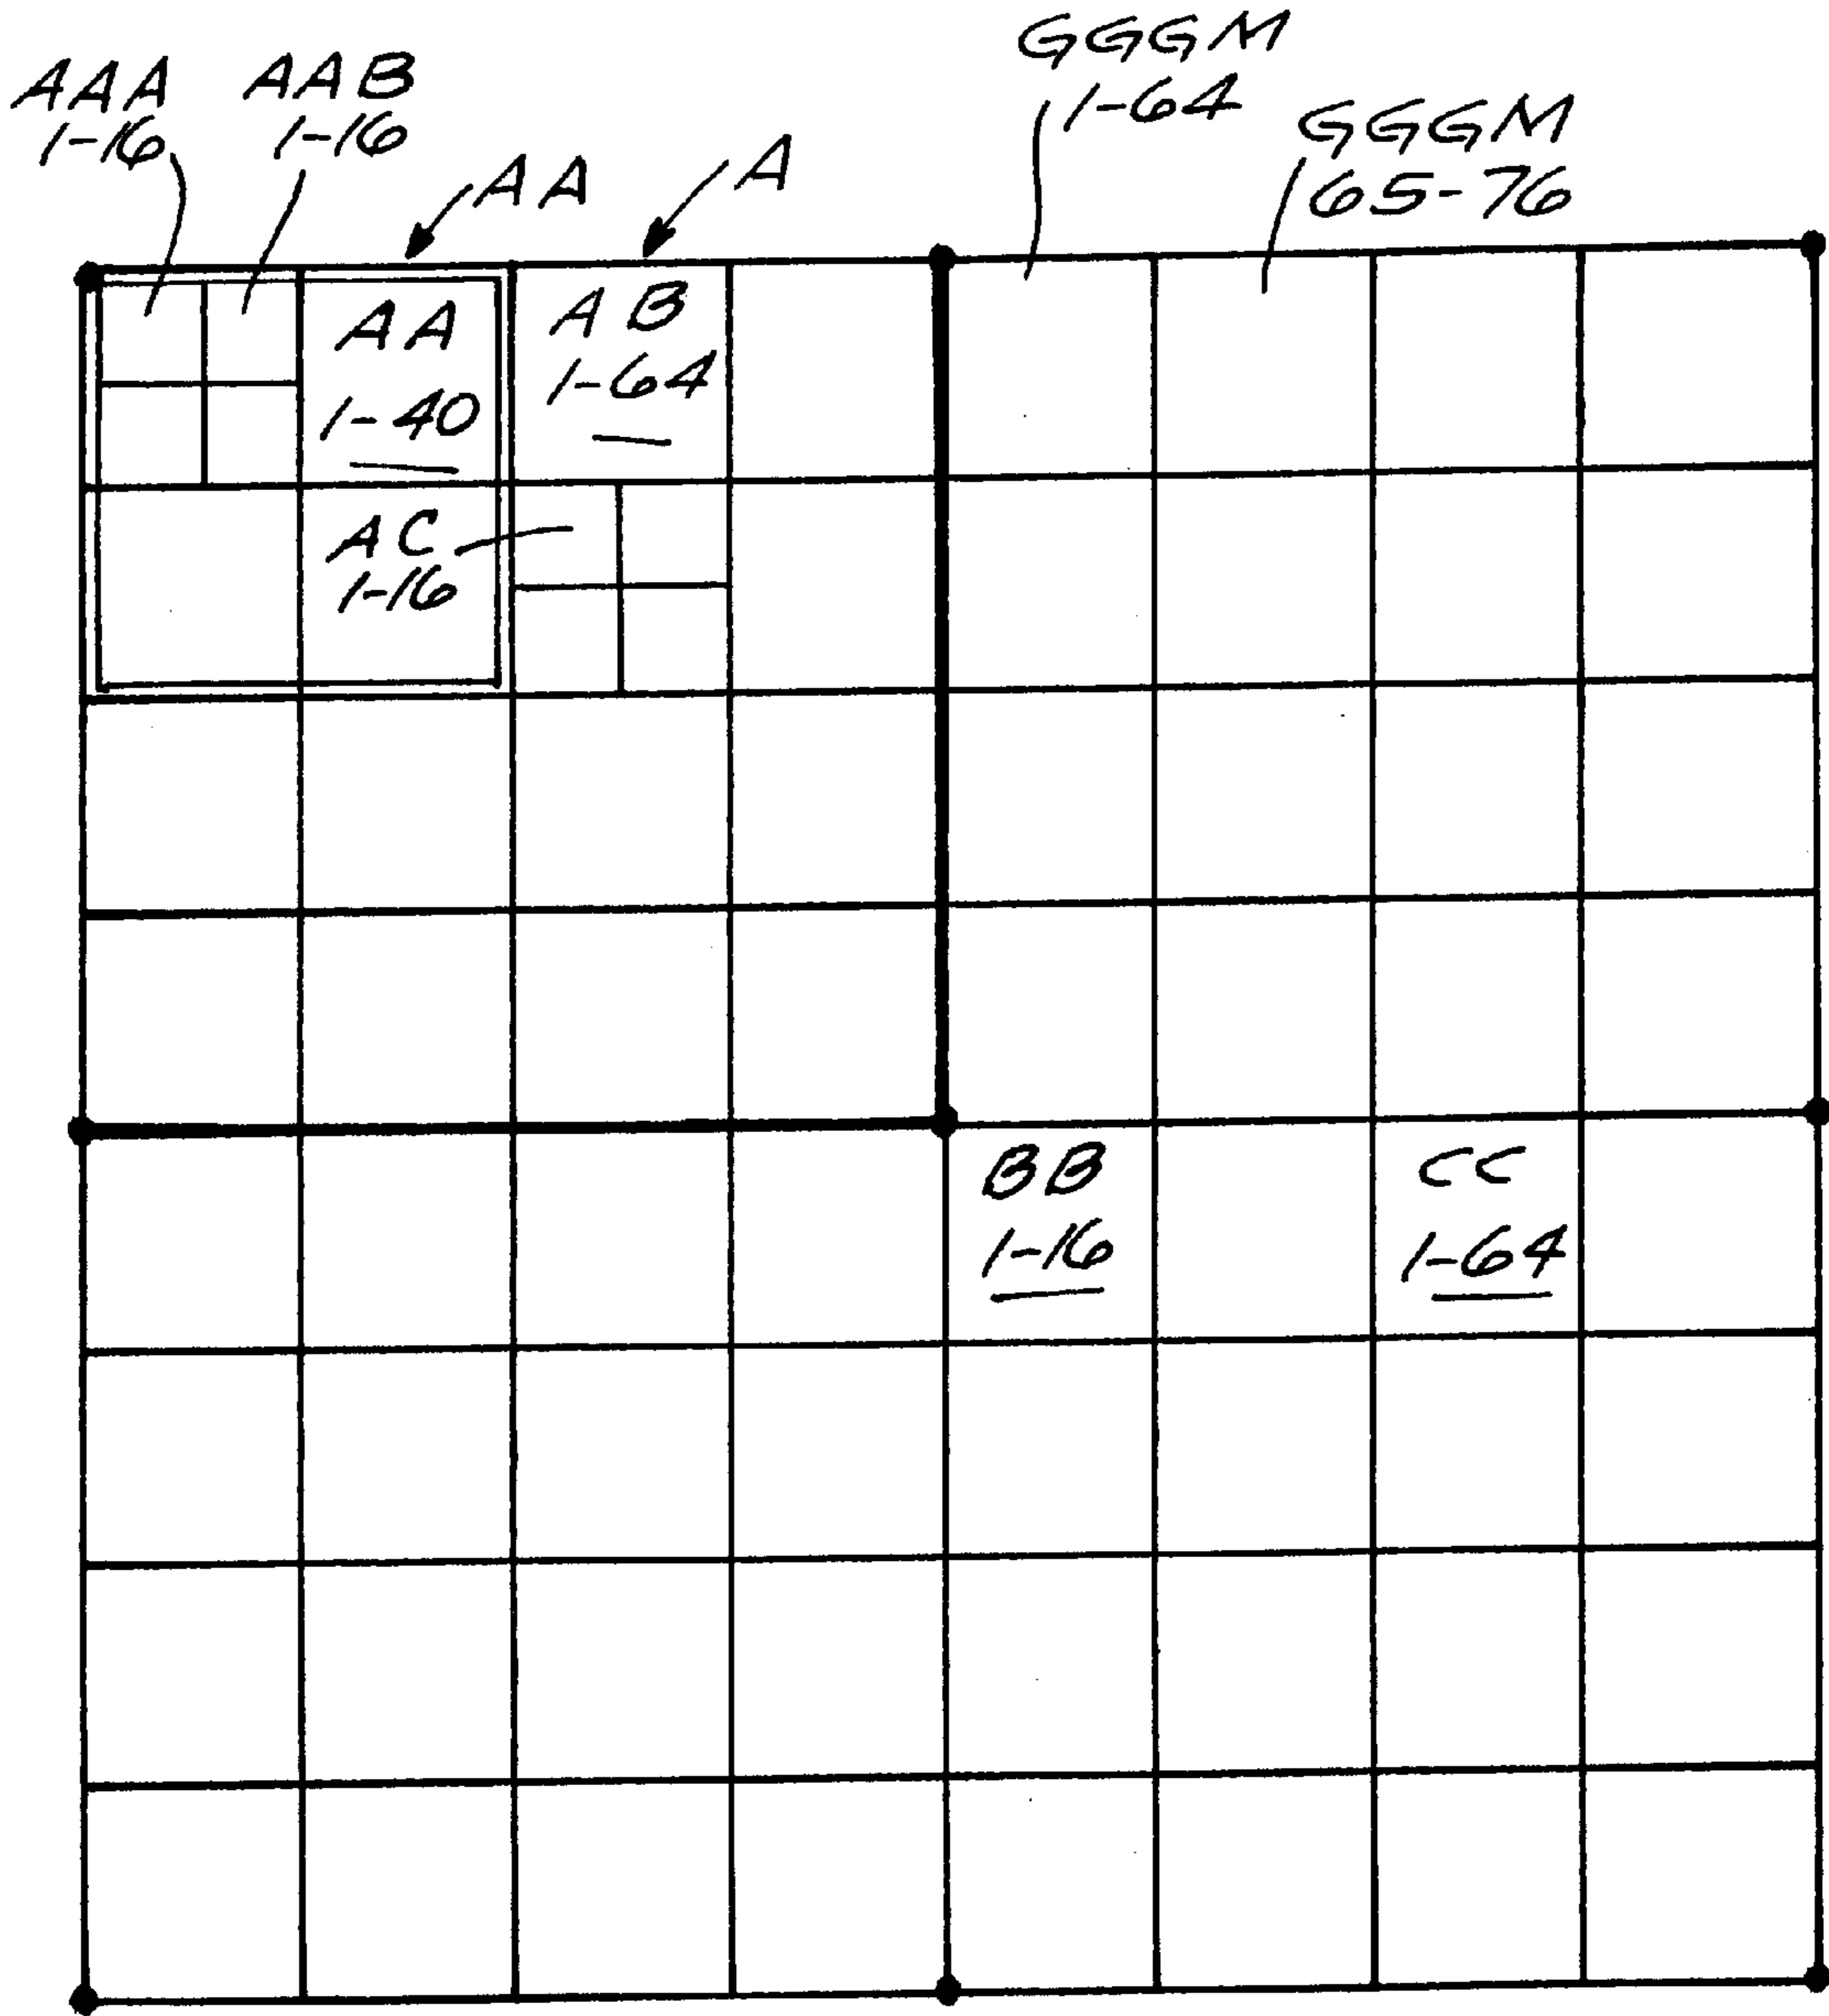 AAA
1-16
AAB
1-16
AA
A
GGGM
1-64
GGGM
65-76
AA
1-40
AB
1-64
AC
1-16
BB
1-16
CC
1-64